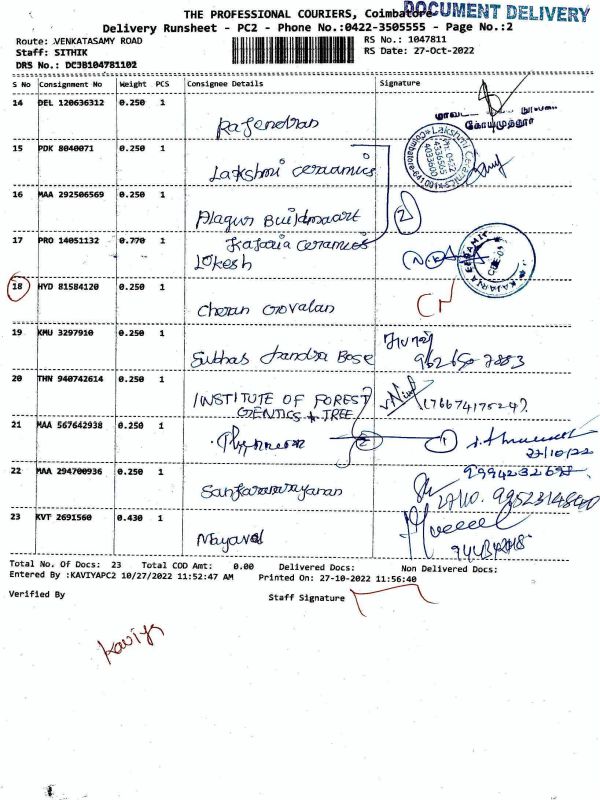 THE PROFESSIONAL COURIERS, Coimbatore
DOCUMENT DELIVERY
Delivery Runsheet - PC2 - Phone No.:0422-3505555 - Page No.:2
Route: VENKATASAMY ROAD
RS No.: 1047811
Staff: SITHIK
RS Date: 27-Oct-2022
DRS No.: DC3B104781102
S No Consignment No Weight PCS Consignee Details Signature
14 DEL 120636312 0.250 1 Rajendran
கோயமுத்தூர்
15 PDK 8040071 0.250 1 Lakshmi ceramics
16 MAA 292506569 0.250 1 Alagur Buildmaart 2
17 PRO 14051132 0.770 1 Kajaria ceramics
Lokesh
18 HYD 81584120 0.250 1 Cheran CN
19 KMU 3297910 0.250 1 Subhas Chandra Bose
20 THN 940742614 0.250 1 INSTITUTE OF FOREST
GENTICS & TREE
21 MAA 567642938 0.250 1 2 1
27/10/22
22 MAA 294700936 0.250 1 Sankaranarayanan
27/10.
23 KVT 2691560 0.430 1
Total No. Of Docs: 23 Total COD Amt: 0.00 Delivered Docs: Non Delivered Docs:
Entered By :KAVIYAPC2 10/27/2022 11:52:47 AM Printed On: 27-10-2022 11:56:40
Verified By Staff Signature
Kaviya